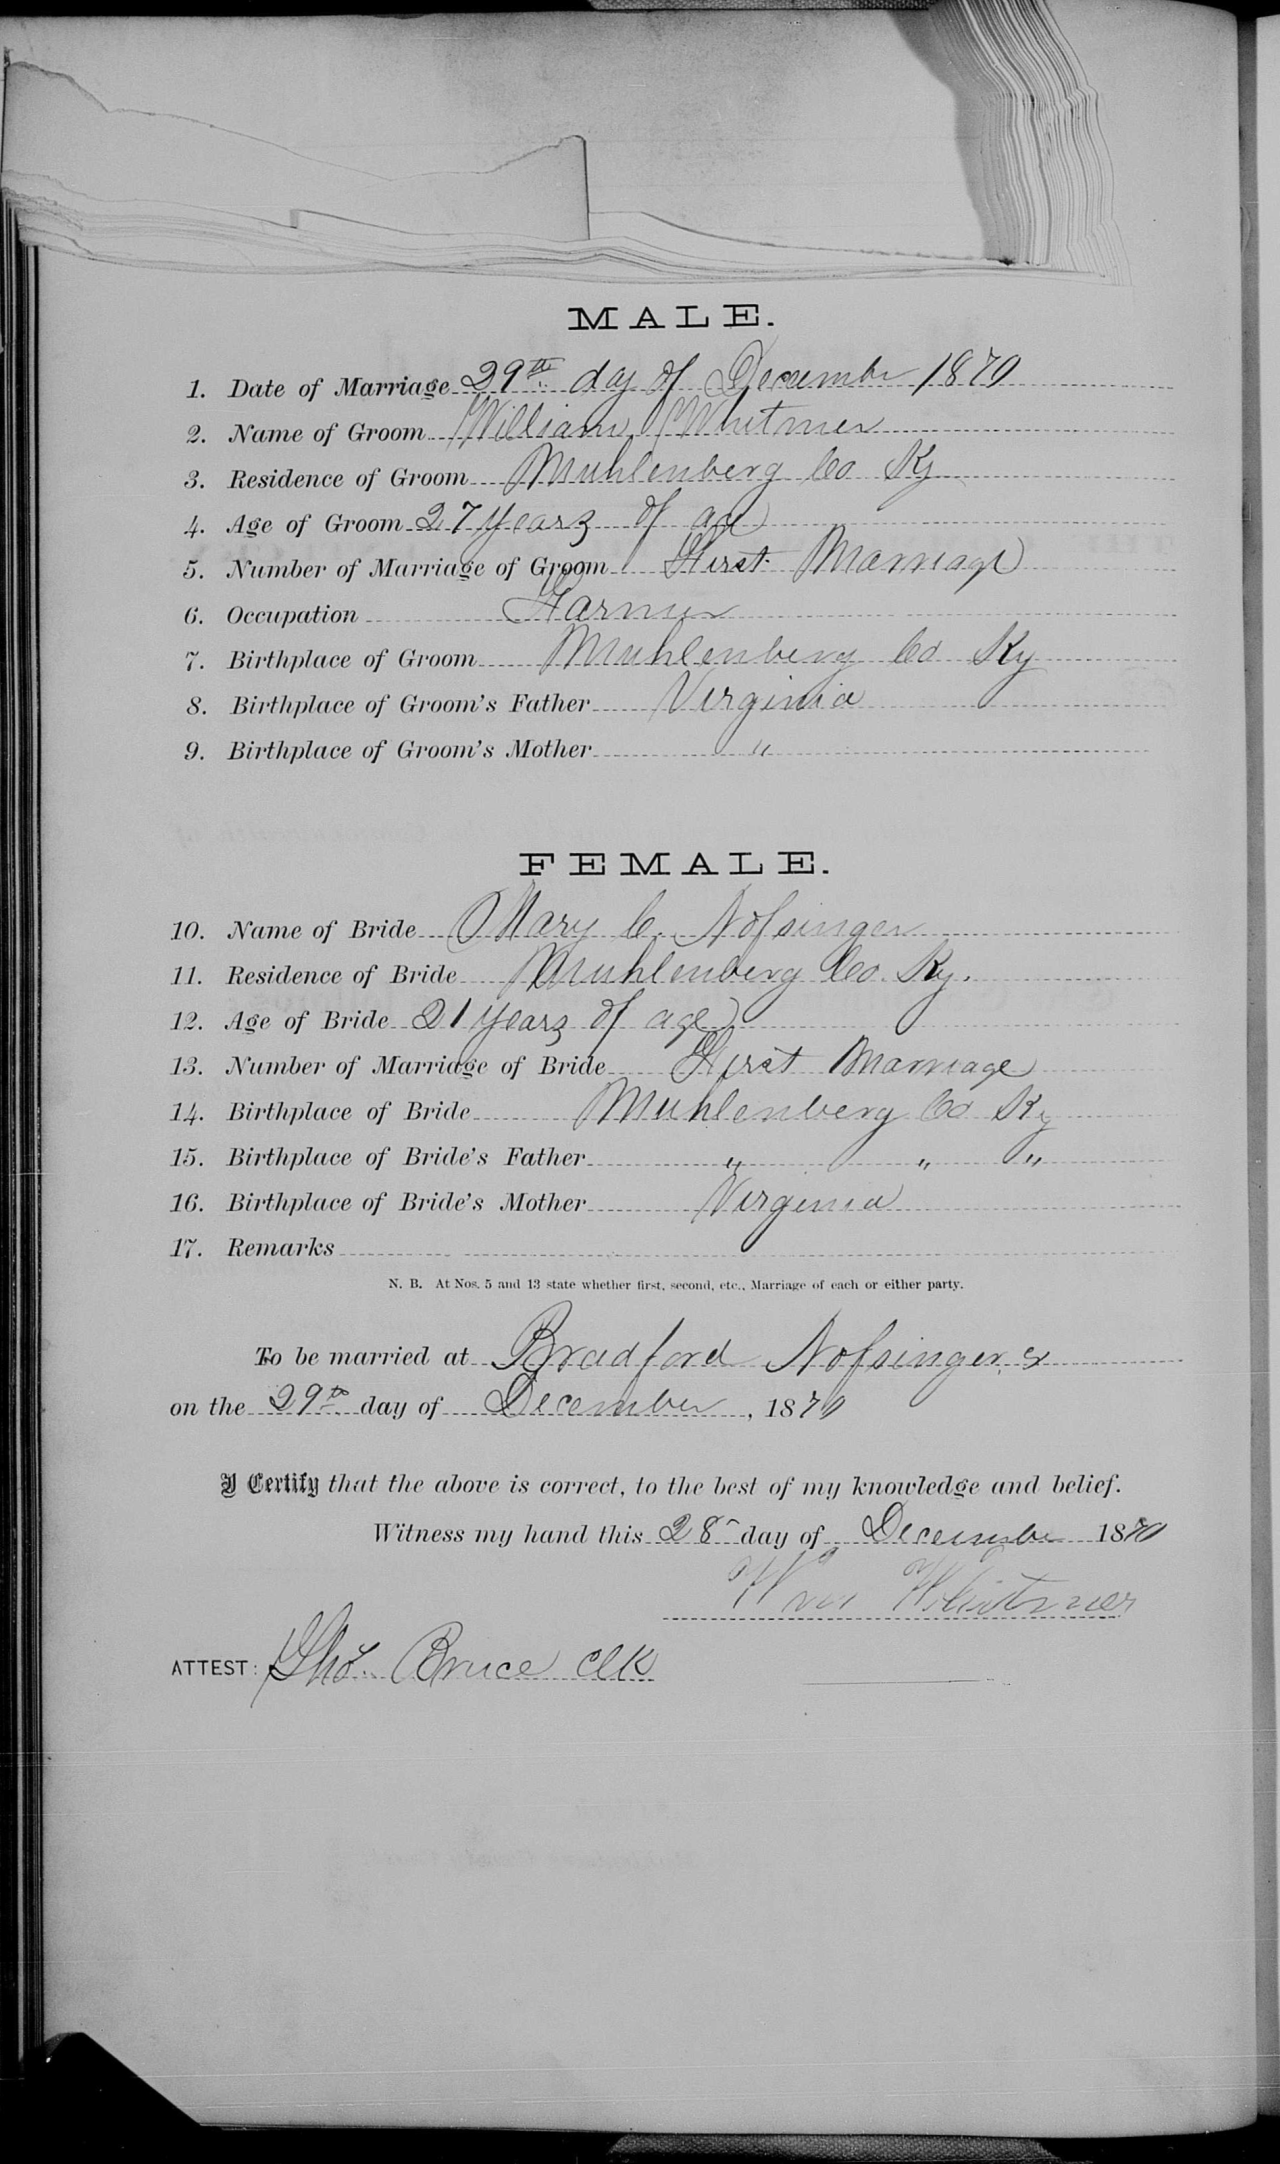 MALE.
1. Date of Marriage 29th day of December 1870
2. Name of Groom William Whitmer
3. Residence of Groom Muhlenberg Co Ky
4. Age of Groom 27 years of age
5. Number of Marriage of Groom First Marriage
6. Occupation Farmer
7. Birthplace of Groom Muhlenberg Co Ky
8. Birthplace of Groom's Father Virginia
9. Birthplace of Groom's Mother "
FEMALE.
10. Name of Bride Mary C. Nofsinger
11. Residence of Bride Muhlenberg Co. Ky.
12. Age of Bride 21 years of age
13. Number of Marriage of Bride First Marriage
14. Birthplace of Bride Muhlenberg Co Ky
15. Birthplace of Bride's Father " " "
16. Birthplace of Bride's Mother Virginia
17. Remarks
N. B. At Nos. 5 and 13 state whether first, second, etc., Marriage of each or either party.
To be married at Bradford Nofsinger,s
on the 29th day of December, 1870
I Certify that the above is correct, to the best of my knowledge and belief.
Witness my hand this 28 day of December 1870
Wm Whitmer
ATTEST: Tho. Bruce Clk